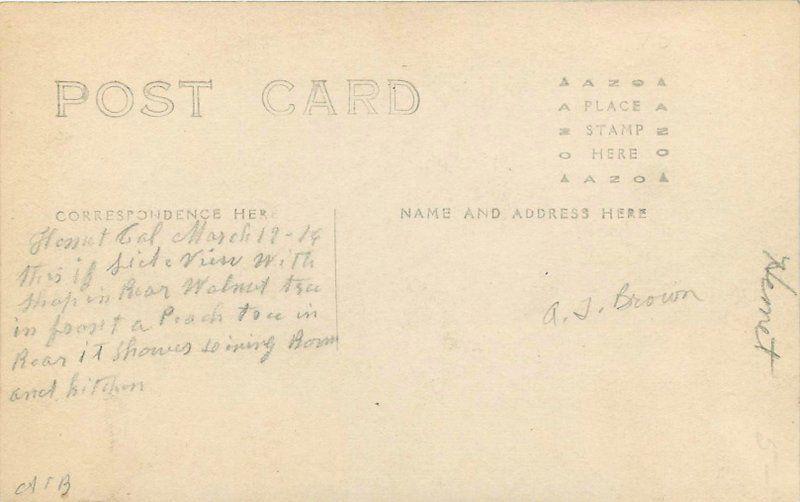 POST CARD
AZO
PLACE
STAMP
HERE
AZO
CORRESPONDENCE HERE
NAME AND ADDRESS HERE
Hemet Cal March 19-14
this is Side View With
Shop in Rear Walnut tree
in front a Peach tree in
Rear it Shows Dining Room
and kitchen
A.J. Brown
Hemet
AJB